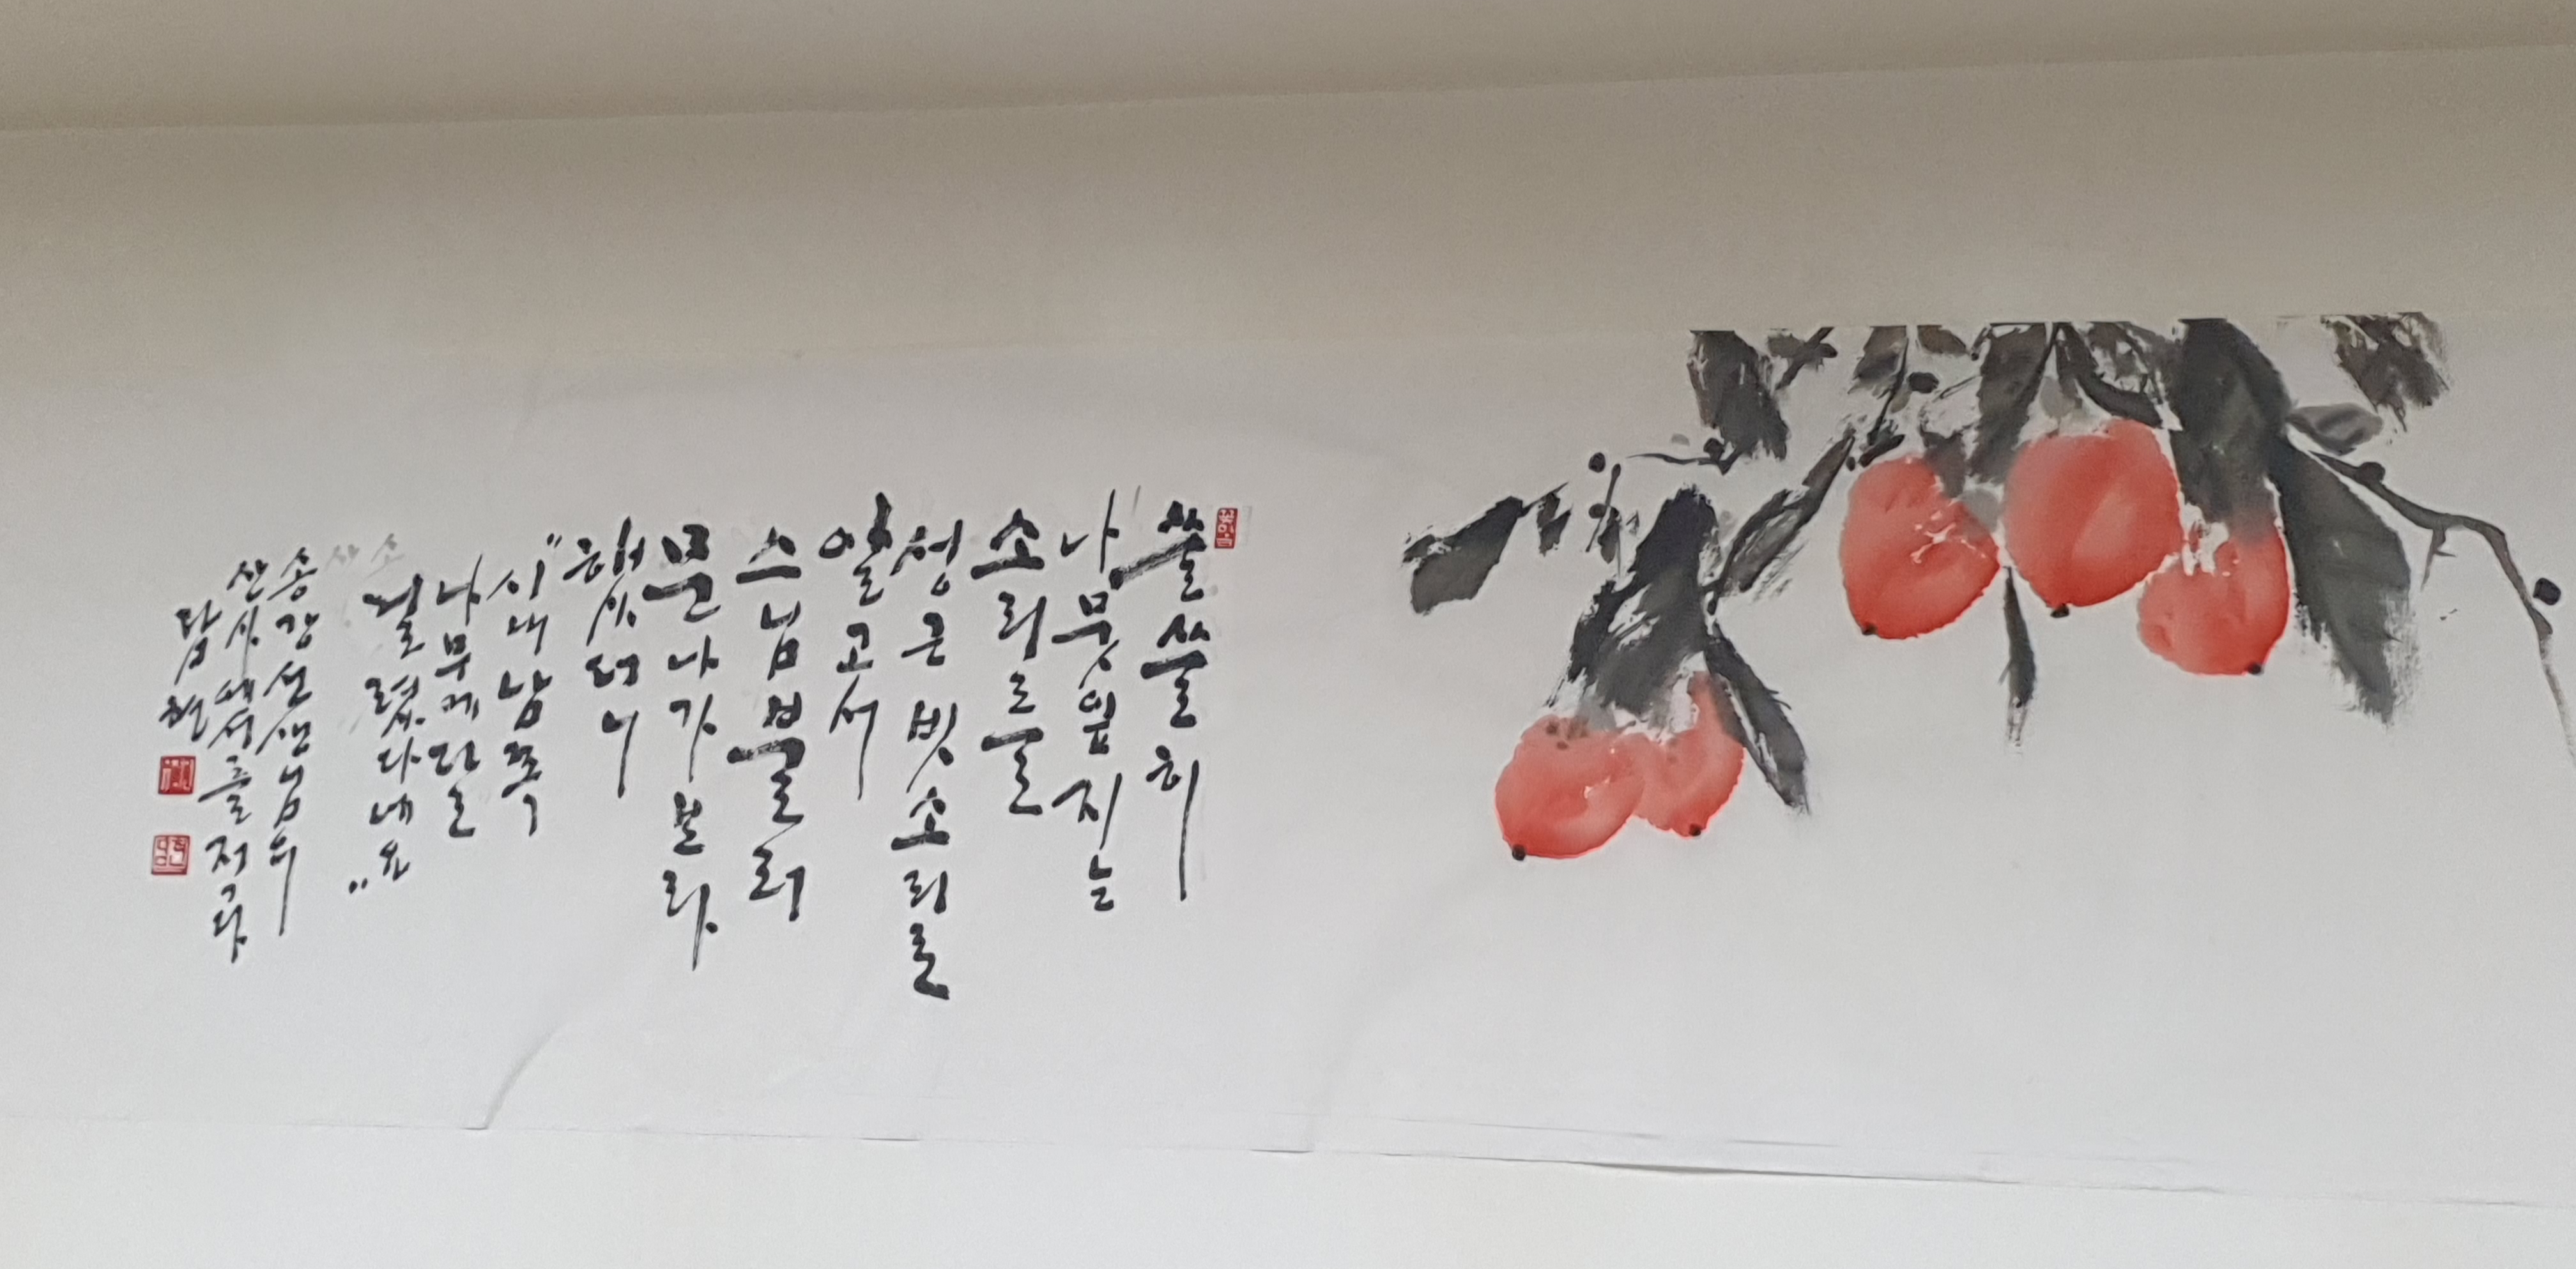 쓸쓸히
나뭇잎지는
소리를
성근빗소리로
알고서
스님불러
문나가보라
했더니
"시내남쪽
나무에달
걸렸다네요"
송강선생님의
산사에서를적다
담헌